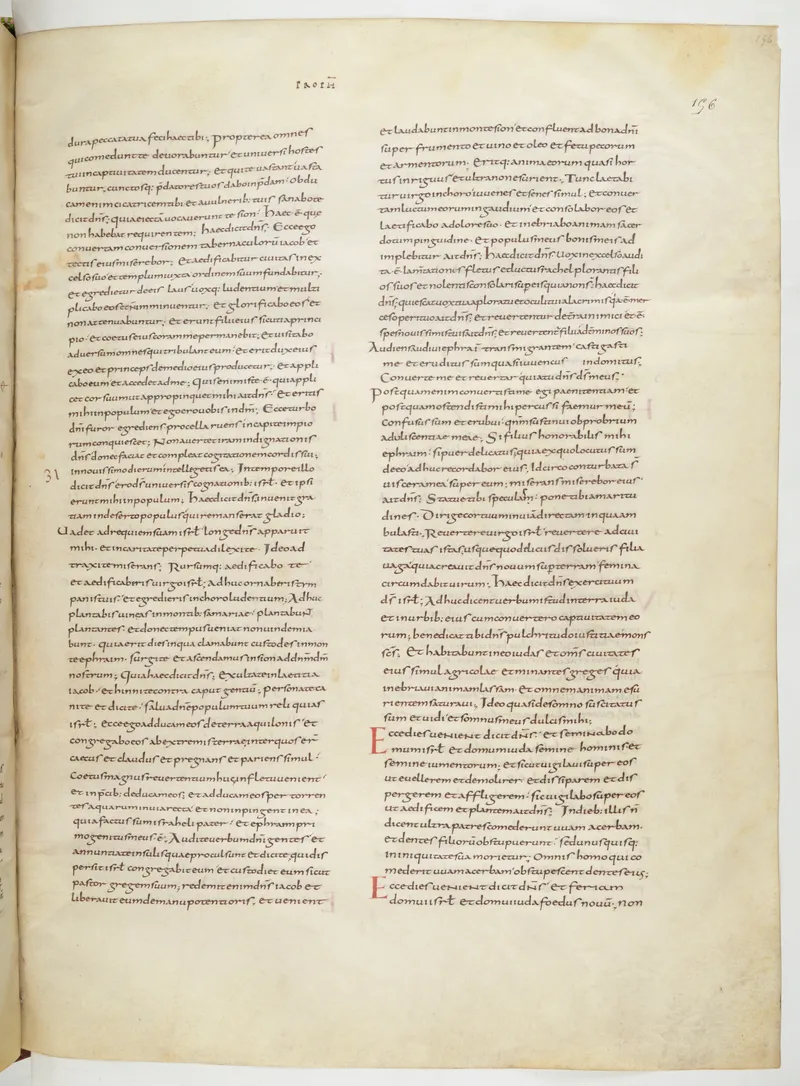 156
dura peccata tua feci haec tibi; Propterea omnes
qui comedunt te devorabuntur et universi hostes
tui in captivitatem ducentur; et qui te vastant vasta
buntur, cunctosq; p̄datores tuos dabo in p̄dam; Obdu
cam enim cicatricem tibi et a vulnerib; tuis sanabo te
dicit dn̄s; quia eiecta vocaverunt te sion; Haec ē que
non habebat requirentem; haec dicit dn̄s; Ecce ego
convertam conversionem tabernaculorū iacob et
tectis eius miserebor; Et aedificabitur civitas in ex
celso suo et templum iuxta ordinem suum fundabitur;
et egredietur de eis laus voxq; ludentium et multi
plicabo eos et non minuentur; et glorificabo eos et
non attenuabuntur; et erunt filii eius sicut a princi
pio et coetus eius coram me permanebit; et visitabo
adversum omnes qui tribulant eum et erit dux eius
ex eo et princeps de medio eius producetur; et appli
cabo eum et accedet ad me; Quis enim iste ē qui appli
cet cor suum ut appropinquet mihi ait dn̄s; et eritis
mihi in populum et ego ero vobis in dm̄; Ecce turbo
dn̄i furor egrediens procella ruens in capite impio
rum conquiescet; Non avertet iram indignationis
dn̄s donec faciat et compleat cogitationem cordis sui;
31
in novissimo dierum intellegetis ea; In tempore illo
dicit dn̄s ero ds̄ universis cognationib; isrł et ipsi
erunt mihi in populum; Haec dicit dn̄s invenit gra
tiam in deserto populus qui remanserat gladio;
Vadet ad requiem suam isrł longe dn̄s apparuit
mihi et in caritate perpetua dilexi te Ideo ad
traxi te miserans; Rursumq; aedificabo te
et aedificaberis virgo isrł; Adhuc ornaberis tym
panis tuis et egredieris in choro ludentium; Adhuc
plantabis vineas in montib; samariae plantabunt
plantantes et donec tempus veniat non vindemia
bunt quia erit dies in qua clamabunt custodes in mon
te ephraim surgite et ascendamus in sion ad dnm̄ dm̄
nostrum; Quia haec dicit dn̄s; exultate in laetitia
iacob et hinnite contra caput gentiū; personate ca
nite et dicite salva dn̄e populum tuum reliquias
isrł; ecce ego adducam eos de terra aquilonis et
congregabo eos ab extremis terrae inter quos er̄
caecus et claudus et pregnans et pariens simul
Coetus magnus revertentium huc; in fletu venient
et in p̄cib; deducam eos; et adducam eos per torren
tes aquarum in via recta et non inpingent in ea;
quia factus sum israheli pater et ephraim pri
mogenitus meus ē; Audite verbum dn̄i gentes et
annuntiate in insulis quae procul sunt et dicite qui dis
persit isrł congregabit eum et custodiet eum sicut
pastor gregem suum; redemit enim dn̄s iacob et
liberavit eum de manu potentioris; et venient
et laudabunt in monte sion et confluent ad bona dn̄i
super frumento et vino et oleo et fetu pecorum
et armentorum eritq; anima eorum quasi hor
tus inriguus et ultra non esurient; Tunc laetabi
tur virgo in choro iuvenes et senes simul; et conver
tam luctum eorum in gaudium et consolabor eos et
laetificabo a dolore suo et inebriabo animam sacer
dotum pinguidine et populus meus bonis meis ad
implebitur ait dn̄s; Haec dicit dn̄s vox in excelso audi
ta ē lamtationis fletus et luctus rachel plorans fili
os suos et nolentis consolari super eis quia non s̄; haec dicit
dn̄s; quiescat vox tua a ploratu et oculi tui a lacrimis quia ē mer
ces operi tuo ait dn̄s; et revertentur de terra inimici et ē
spes novissimis tuis ait dn̄s; et revertent̄ filii ad terminos suos;
Audiens audivi ephraī transmigrantem castigasti
me et eruditus sum quasi iuvencus indomitus;
Converte me et revertar quia tu dn̄s ds̄ meus;
Postquam enim convertisti me egi paenitentiam et
postquam ostendisti mihi percussi faemur meū;
Confusus sum et erubui qm̄ sustinui obprobrium
adoliscentiae meae; Si filius honorabilis mihi
ephraim si puer delicatus; quia ex quo locutus sum
de eo adhuc recordabor eius; Idcirco conturbata s̄
viscera mea super eum; miserans miserebor eius
ait dn̄s; Statue tibi speculam pone tibi amaritu
dines Dirige cor tuum in viā directam in qua am
bulasti; Revertere virgo isrł revertere ad civi
tates tuas istas; usquequo diliciis dissolueris filia
vaga; quia creavit dn̄s novum super terram femina
circumdabit virum; Haec dicit dn̄s exercituum
ds̄ isrł; Adhuc dicent verbum istud in terra iuda
et in urbib; eius cum convertero captivitatem eo
rum; benedicat tibi dn̄s pulchritudo iustitiae mons
sc̄s; Et habitabunt in eo iudas et omīs civitates
eius simul agricolae et minantes greges quia
inebriavi animam lassam et omnem animam esu
rientem saturavi; Ideo quasi de somno suscitatus
sum et vidi et somnus meus dulcis mihi;
Ecce dies veniunt dicit dn̄s et seminabo do
mum isrł et domum iuda semine hominis et
semine iumentorum; et sicut vigilavi super eos
ut evellerem et demolirer et dissiparem et dis
pergerem et affligerem sic vigilabo super eos
ut aedificem et plantem ait dn̄s; In dieb; illis n̄
dicent ultra patres comederunt uvam acerbam
et dentes filiorū obstupuerunt sed unusquisq;
in iniquitate sua morietur; Omnis homo qui co
mederit uvam acerbam obstupescent dentes eius;
Ecce dies venient dicit dn̄s et feriam
domui isrł et domui iuda foedus novū; non